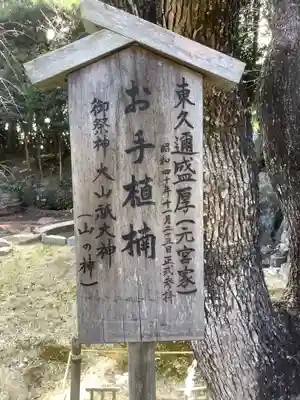 東久邇盛厚(元宮家)
昭和四十年十一月二十五日正式参拝
お手植楠
御祭神 大山祇大神
(山の神)